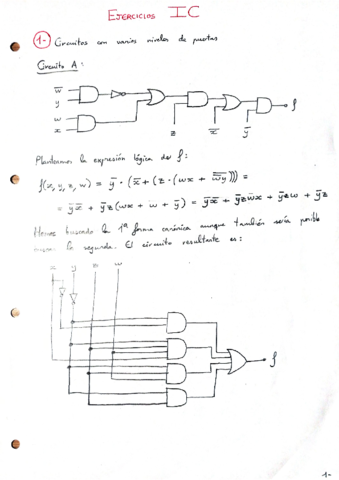 EJERCICIOS IC
1- Circuitos con varios niveles de puertas
Circuito A:
w̅
y
w
x
z
x̅
y̅
f
Planteamos la expresión lógica de f:
f(x,y,z,w) = y̅ · (x̅ + (z · (wx + \overline{w̅y}))) =
= y̅x̅ + y̅z(wx + w + y̅) = y̅x̅ + y̅zwx + y̅zw + y̅z
Hemos buscado la 1ª forma canónica aunque también sería posible
la segunda. El circuito resultante es:
x y z w
f
1-